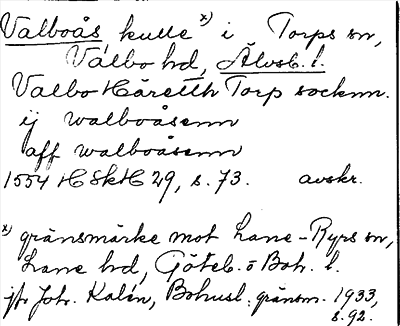 Valboås kulle x) i Torps sn,
Valbo hd, Älvsb. l.
Valbo Häreth Torp socknn.
ij walboåsenn
aff walboåsenn
1554 HSkH 29, s. 73. avskr.
x) gränsmärke mot Lane-Ryrs sn,
Lane hd, Göteb. o Boh. l.
jfr Joh. Kalén, Bohusl. gränsm. 1933,
s. 92.